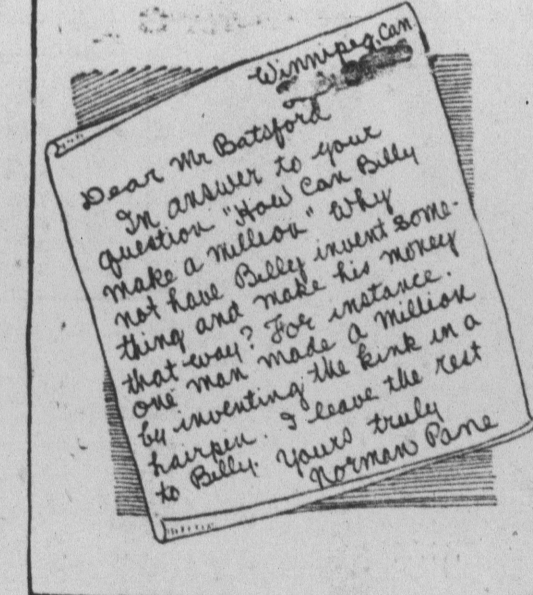 Winnipeg, Can
Dear Mr Batsford
In answer to your
question "How can Billy
make a million" Why
not have Billy invent some-
thing and make his money
that way? For instance.
one man made a million
by inventing the kink in a
hairpen. I leave the rest
to Billy. Yours truly
Norman Pane